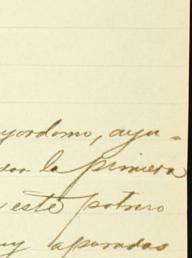 yordomo, ayu=
por la primera
este potrero
uy apurados